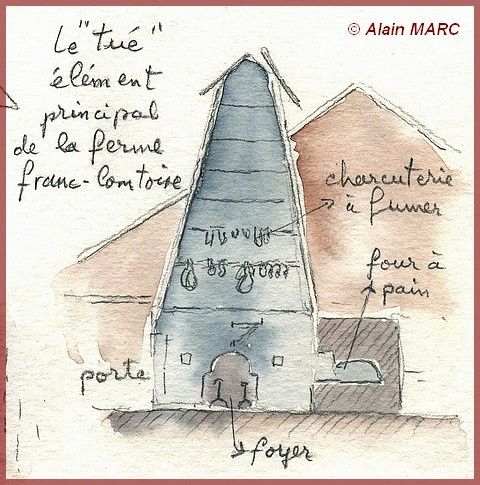 Le "tué"
élément
principal
de la ferme
franc-Comtoise
© Alain MARC
charcuterie
à fumer
four à
pain
porte
foyer